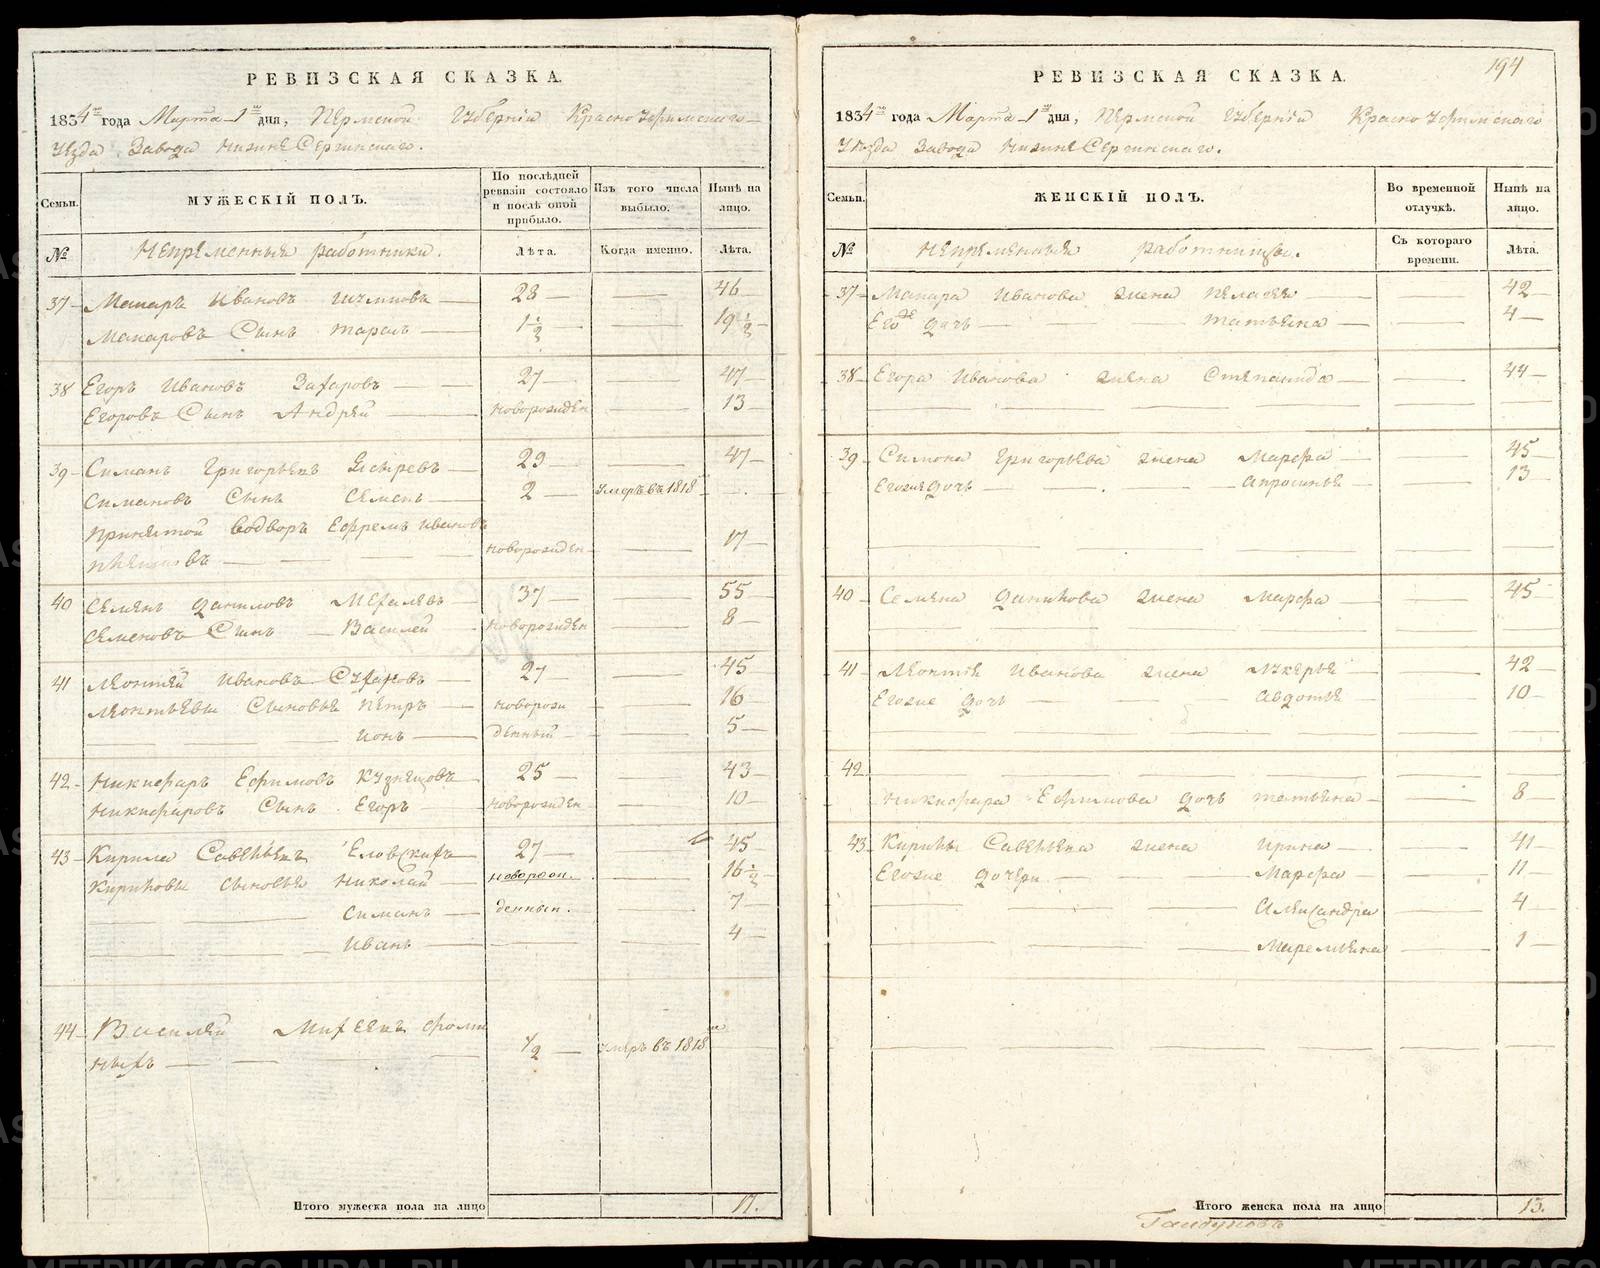 РЕВИЗСКАЯ СКАЗКА.
1834го года Марта 1го дня, Пермской Губерніи Красноуфимскаго
Уезда Завода НижнеСергинскаго.
Семьи. МУЖЕСКІЙ ПОЛЪ. По послѣдней ревизіи состояло и послѣ оной прибыло. Изъ того числа выбыло. Нынѣ на лицо.
№ Непременныя работники. Лѣта. Когда именно. Лѣта.
37 Макаръ Ивановъ 28 46
Макаровъ Сынъ Тарасъ 1½ 19½
38 Егоръ Ивановъ Захаровъ 27 47
Егоровъ Сынъ Андрей новорожден 13
39 Симанъ Григорьевъ 29 47
Симановъ Сынъ Семенъ 2 умеръ въ 1818
Принятой водворъ Ефремъ Ивановъ
новорожден 17
40 Семенъ Даниловъ 37 55
Семеновъ Сынъ Василей новорожден 8
41 Леонтей Ивановъ 27 45
Леонтьевы Сыновья Петръ новорож 16
Іонъ денный 5
42 Никифаръ Ефимовъ Кузнецовъ 25 43
Никифаровъ Сынъ Егоръ новорожден 10
43 Кирила Савельевъ Еловскихъ 27 45
Кириловы сыновья Николай новорож. 16½
Симанъ денныи. 7
Иванъ 4
44 Василей Михеевъ Фоми
ныхъ ½ умеръ въ 1818
Итого мужеска пола на лицо 17.
194
РЕВИЗСКАЯ СКАЗКА.
1834го года Марта 1го дня, Пермской Губерніи Красноуфимскаго
Уезда Завода НижнеСергинскаго.
Семьи. ЖЕНСКІЙ ПОЛЪ. Во временной отлучкѣ. Нынѣ на лицо.
№ Непременныя работницы. Съ котораго времени. Лѣта.
37 Макара Иванова жена Пелагея 42
Его же дочь Татьяна 4
38 Егора Иванова жена Степанида 44
39 Симона Григорьева жена Марфа 45
Егоже дочь Апросинья 13
40 Семена Данилова жена Марфа 45
41 Леонтія Иванова жена Лукерья 42
Егоже дочь Авдотья 10
42
Никифара Ефимова дочь Татьяна 8
43 Кирилы Савельева жена Ирина 41
Егоже дочери Марфа 11
Александра 4
Маремьяна 1
Итого женска пола на лицо 13.